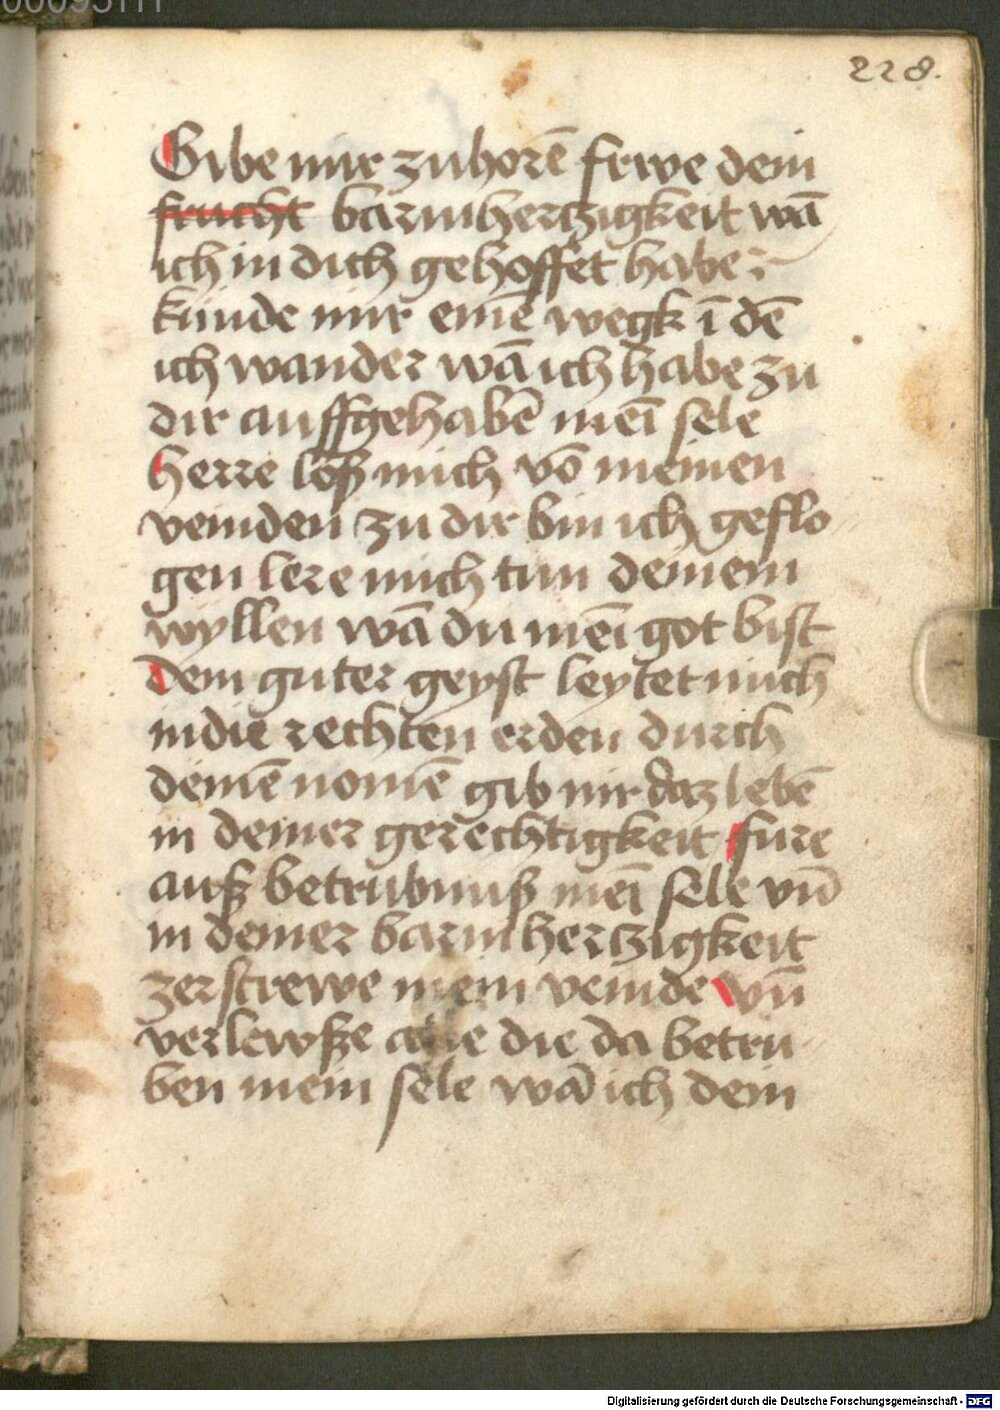 00095111
228.
Gibe mir zuhorē frwe dein
frucht barmhertzigkeit wā
ich in dich gehoffet habe
kunde mir einē wegk ī dē
ich wander wā ich habe zu
dir auffgehabē meī sele
Herre löß mich vō meinen
veinden zu dir bin ich geflo
gen lere mich tun deinem
wyllen wā du meī got bist
Dein guter geyst leytet mich
in die rechten erden durch
deinē nomē gib mir daz lebē
in deiner gerechtigkeit fure
auß betrubnuß meī sele vn̄
in deiner barmhertzigkeit
zerstrewe mein veinde vn̄
verlewße alle die da betru
ben mein sele wā ich dein
Digitalisierung gefördert durch die Deutsche Forschungsgemeinschaft - DFG